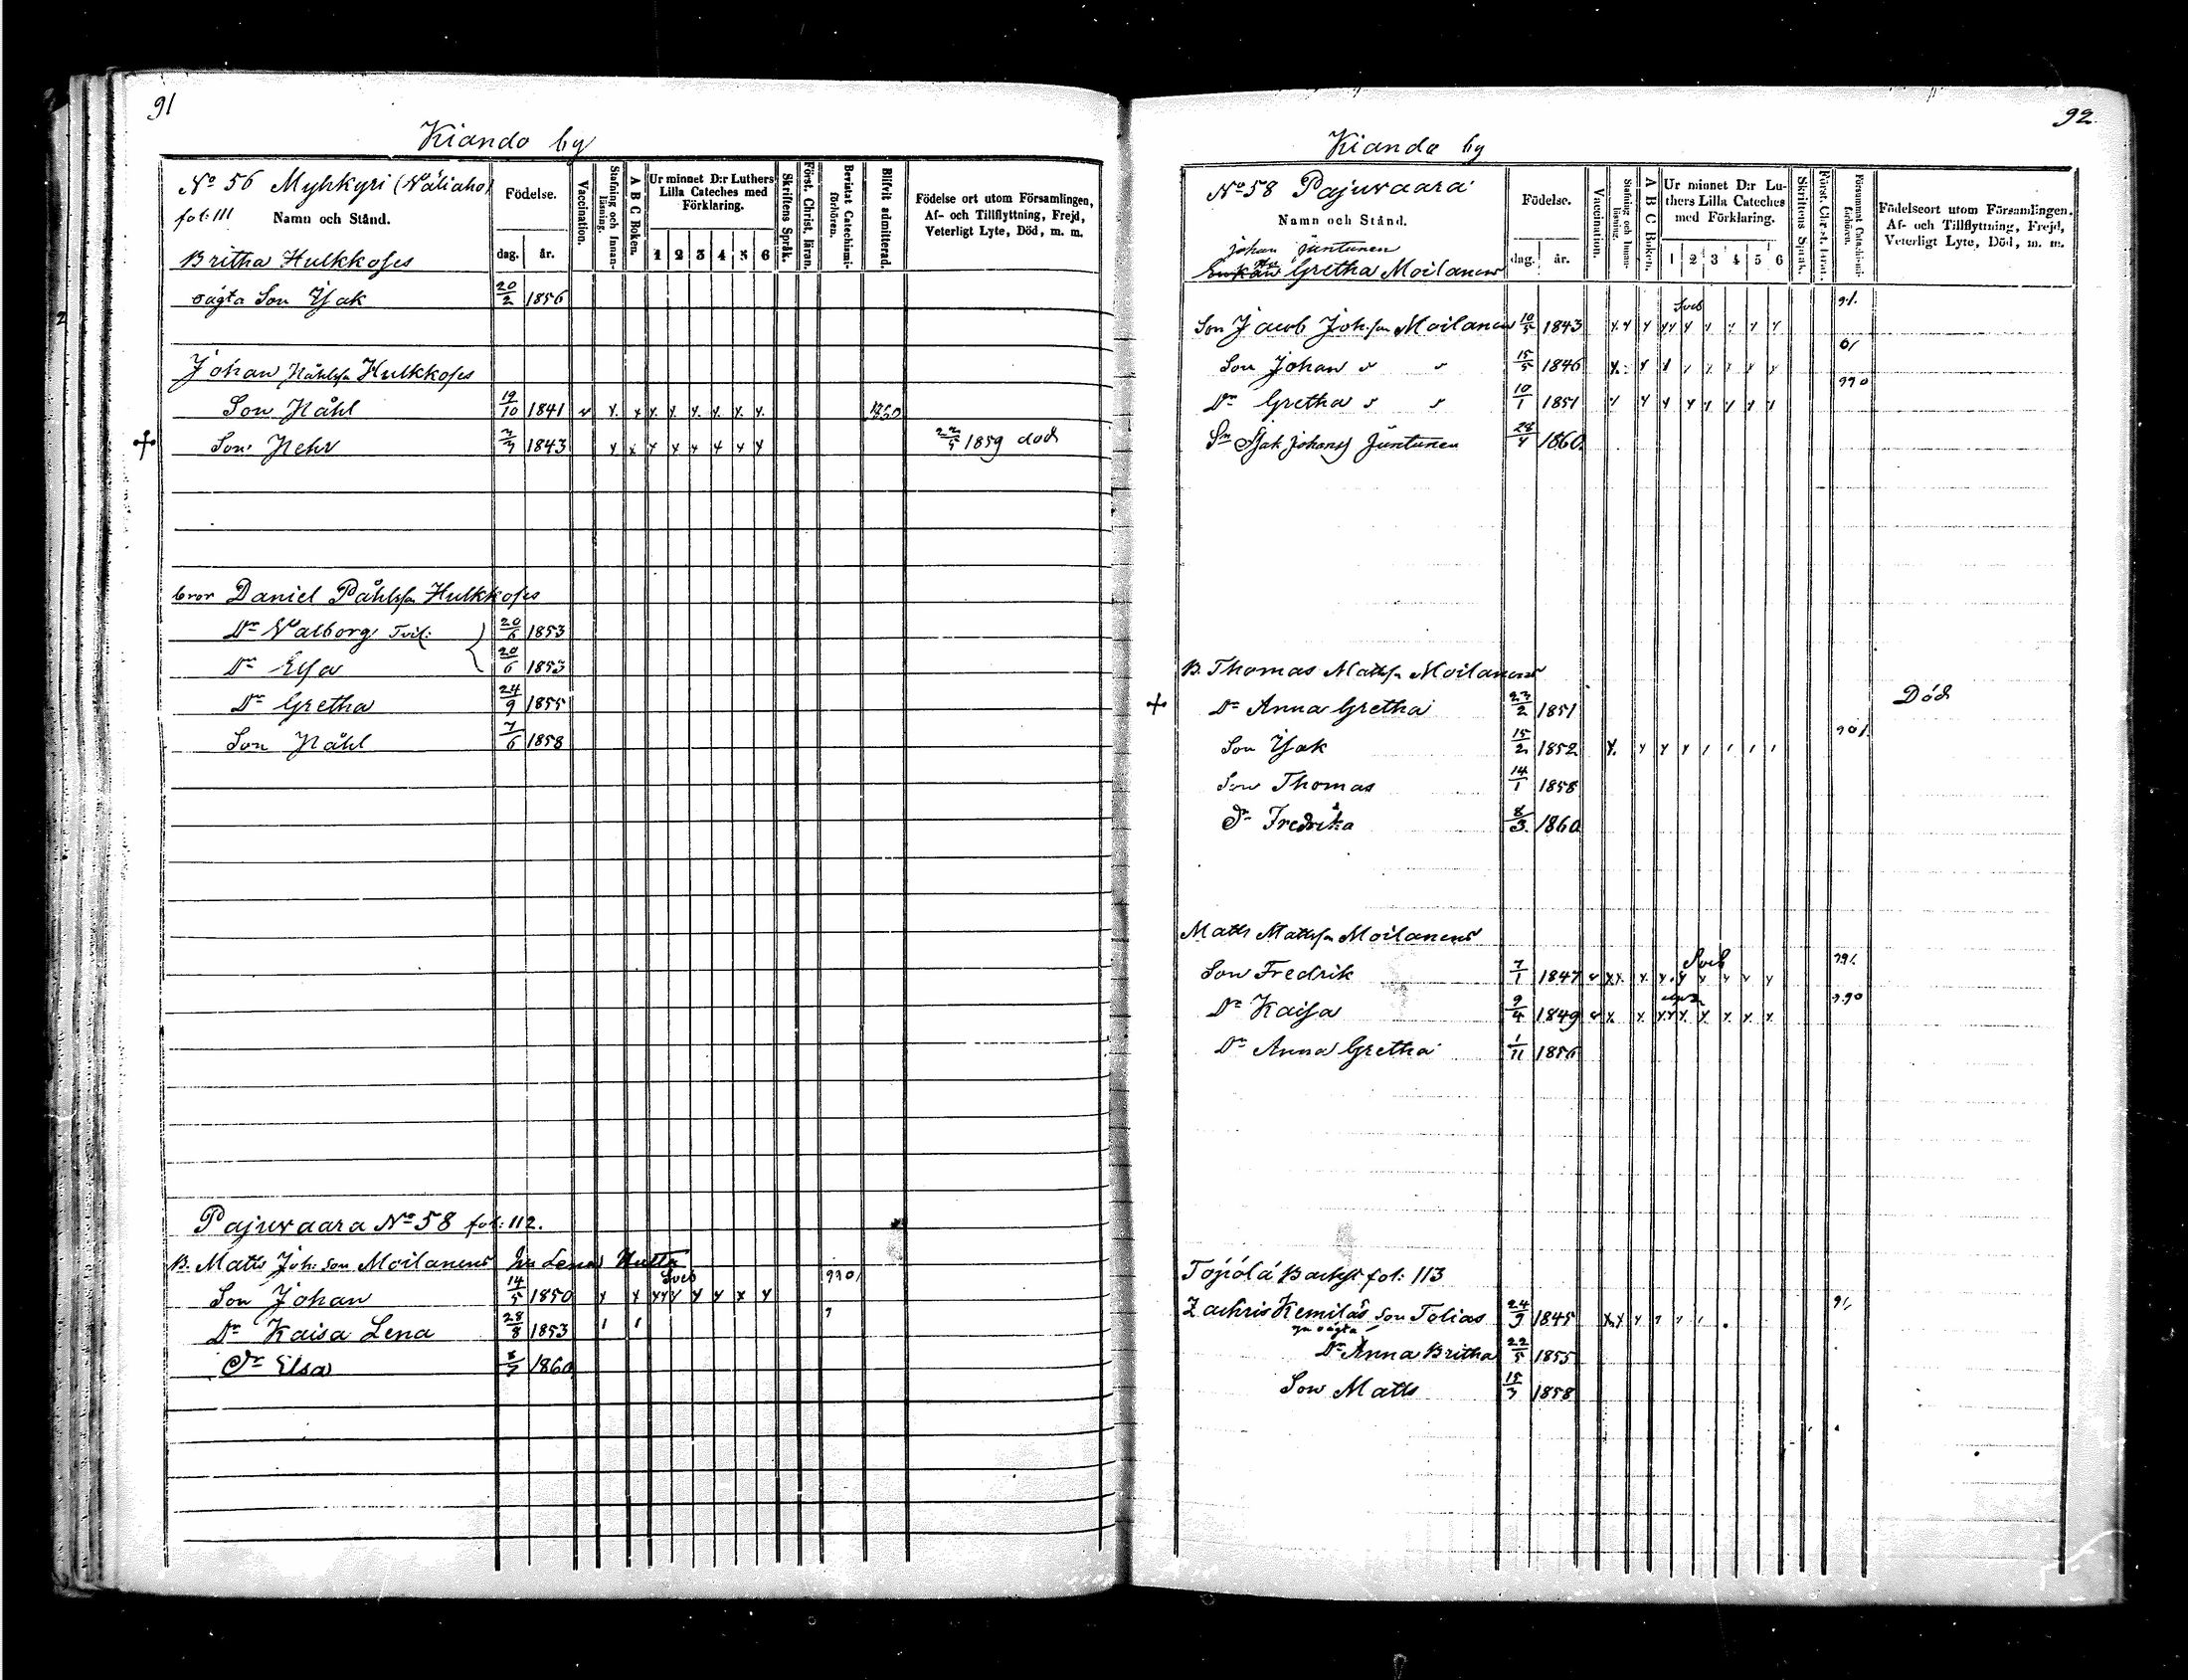 91
Kiando by
No 56 Myhkyri (Väliaho)
fol: 111 Namn och Stånd.
Födelse.
dag. år.
Vaccination.
Stafning och Innanläsning.
A B C Boken.
Ur minnet D:r Luthers Lilla Cateches med Förklaring.
1 2 3 4 5 6
Skriftens Språk.
Först. Christ. läran.
Bevistat Catechismiförhören.
Blifvit admitterad.
Födelse ort utom Församlingen, Af- och Tillflyttning, Frejd, Veterligt Lyte, Död, m. m.
Britha Hulkkoſes
oägta Son Iſak 20/2 1856
Johan Påhlſſn Hulkkoſes
Son Påhl 19/10 1841 1860
Son Pehr 1843 1859 död
bror Daniel Påhlſſn Hulkkoſes
Dr Valborg Tvil: 20/6 1853
Dr Elſa 20/6 1853
Dr Gretha 24/9 1855
Son Påhl 7/6 1858
Pajuvaara No 58 fol: 112.
B. Matts Joh: son Moilanens Lena
Sveb
Son Johan 14/5 1850
Dr Kaisa Lena 28/8 1853
Dr Elsa 1860
92
Kianda by
No 58 Pajuvaara
Namn och Stånd.
Födelse.
dag. år.
Vaccination.
Stafning och Innanläsning.
A B C Boken.
Ur minnet D:r Luthers Lilla Cateches med Förklaring.
1 2 3 4 5 6
Skriftens Språk.
Först. Christ. lärat.
Försummat Catechismiförhören.
Födelseort utom Församlingen. Af- och Tillflyttning, Frejd, Veterligt Lyte, Död, m. m.
Johan Juntunen
Enkan Gretha Moilanens
Sveb
Son Jacob Joh:ſon Moilanen 10/5 1843
Son Johan 15/5 1846
Dr Gretha 10/1 1851
Sn Iſak Johanſſ Juntunen 1860
B. Thomas Mattsſn Moilanens
Dr Anna Gretha 23/2 1851 Död
Son Iſak 15/2 1852
Son Thomas 14/1 1858
Dr Fredrika 8/3 1860
Matts Mattsſn Moilanens
Sveb
Son Fredrik 7/1 1847
Dr Kaiſa 9/4 1849
Dr Anna Gretha 1/11 1856
Topólá Backſt fol: 113
Zachris Kemiläs Son Tobias 24/9 1845
oägta
Dr Anna Britha 22/5 1855
Son Matts 1858